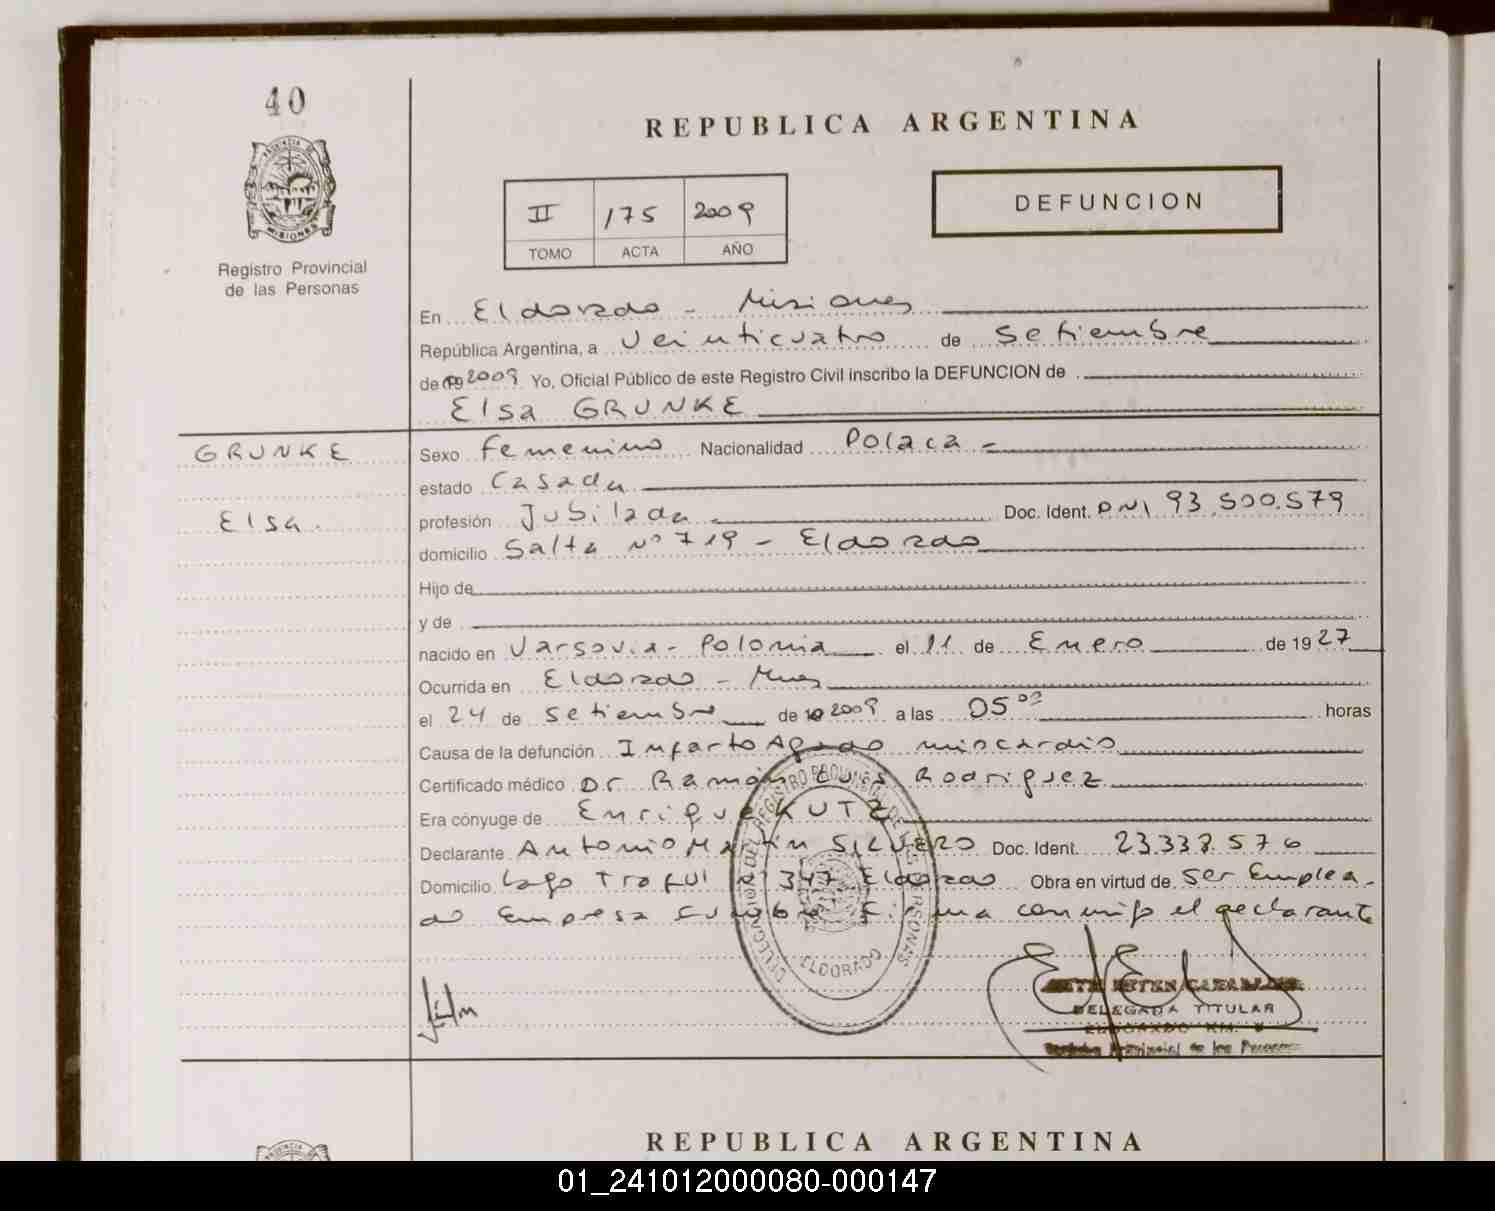 40
PROVINCIA DE
MISIONES
Registro Provincial
de las Personas
REPUBLICA ARGENTINA
II 175 2009
TOMO ACTA AÑO
DEFUNCION
En Eldorado - Misiones
República Argentina, a Veinticuatro de Setiembre
de 19 2009 Yo, Oficial Público de este Registro Civil inscribo la DEFUNCION de
Elsa GRUNKE
GRUNKE
Elsa.
Sexo femenino Nacionalidad Polaca -
estado Casada
profesión Jubilada Doc. Ident. DNI 93.500.579
domicilio Salta Nº 719 - Eldorado
Hijo de
y de
nacido en Varsovia - Polonia el 11 de Enero de 1927
Ocurrida en Eldorado - Mnes
el 24 de Setiembre de 2009 a las 05 00 horas
Causa de la defunción Infarto Agudo miocardio
Certificado médico Dr Ramón Luis Rodriguez
Era cónyuge de Enrique KUTZ
Declarante Antonio Martin SILVERO Doc. Ident. 23338576
Domicilio Lago Traful Nº 347 Eldorado Obra en virtud de Ser Emplea-
do Empresa Firma conmigo el declarante
DELEGACION DEL REGISTRO PROVINCIAL DE LAS PERSONAS
ELDORADO
DELEGADA TITULAR
ELDORADO KM.
Registro Provincial de las Personas
REPUBLICA ARGENTINA
01_241012000080-000147